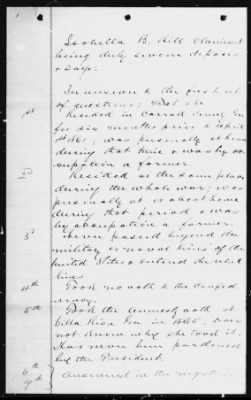 Isabella B. Hill Claimant
being duly sworn deposes
& says:
In answer to the first set
of questions; That she
1st Resided in Carroll County Ga
for six months prior to April
1st 1861; was personally at home
during that time & was by oc-
cupation a farmer.
2d Resided at the same place
during the whole war; was
personally at or about home
during that period & was
by occupation a farmer.
3d Never passed beyond the
military or naval lines of the
United States & entered the rebel
lines
4th Took no oath to the
5th Took the amnesty oath at
Villa Rica Ga in 1865; does
not know why she took it.
Has never been pardoned
by the President.
6th
7th Answered in the